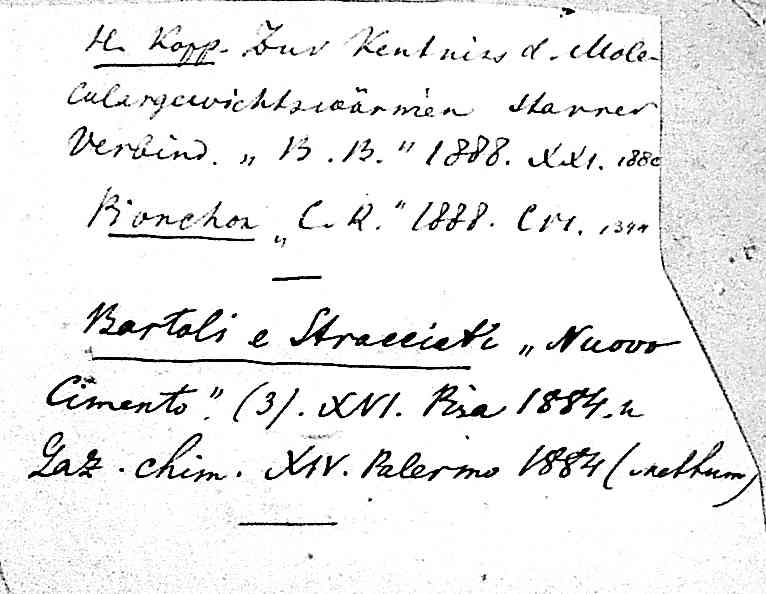 H. Kopp. Zur Kentniss d. Mole-
culargewichtswäärmen starrer
Verbind. „B. B." 1888. XXI.
Pionchon „C. R." 1888. CVI.
Bartoli e Stracciati „Nuovo
Cimento". (3). XVI. Pisa 1884. u
Gaz. chim. XIV. Palermo 1884